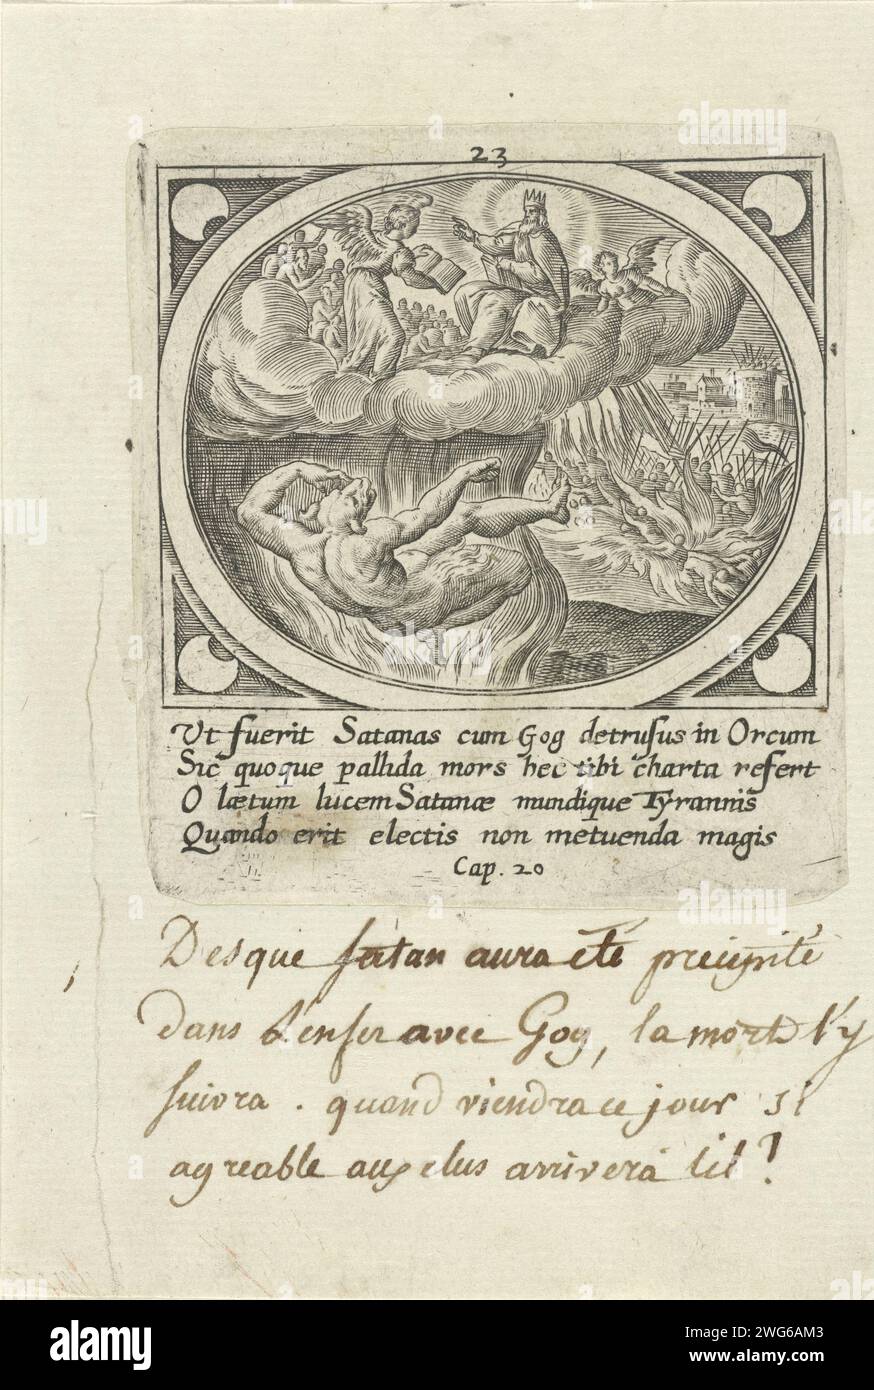 23
Ut fuerit Satanas cum Gog detrusus in Orcum
Sic quoque pallida mors hec tibi charta refert
O lætum lucem Satanæ mundique Tyrannis
Quando erit electis non metuenda magis
Cap. 20
Desque satan aura eté precipité
dans l'enfer avec Gog, la mort l'y
suivra . quand viendra ce jour si
agreable aux elus arrivera til ?
alamy
Image ID: 2WG6AM3
www.alamy.com